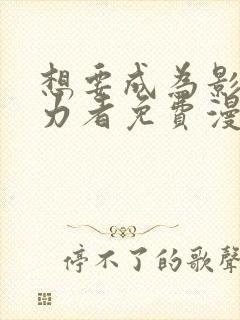 想要成為影
力者免費漫
停不了的歌聲